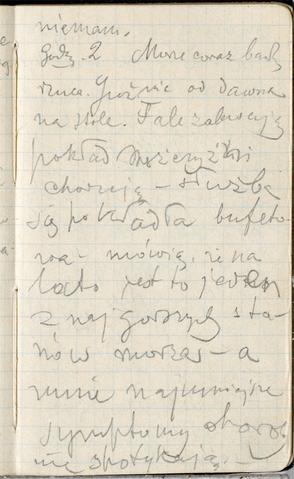 niemam.
Godz. 2 Morze coraz bardz
rzuca. Groźnie od dawna
na stole. Fale zalewają
pokład Mężczyźni
chorują – służba
się pokładła bufeto-
wa – mówią, że na
lato jest to jeden
z najgorszych sta-
nów morza – a
mnie najmniejsze
symptomy chorob
nie spotykają. –